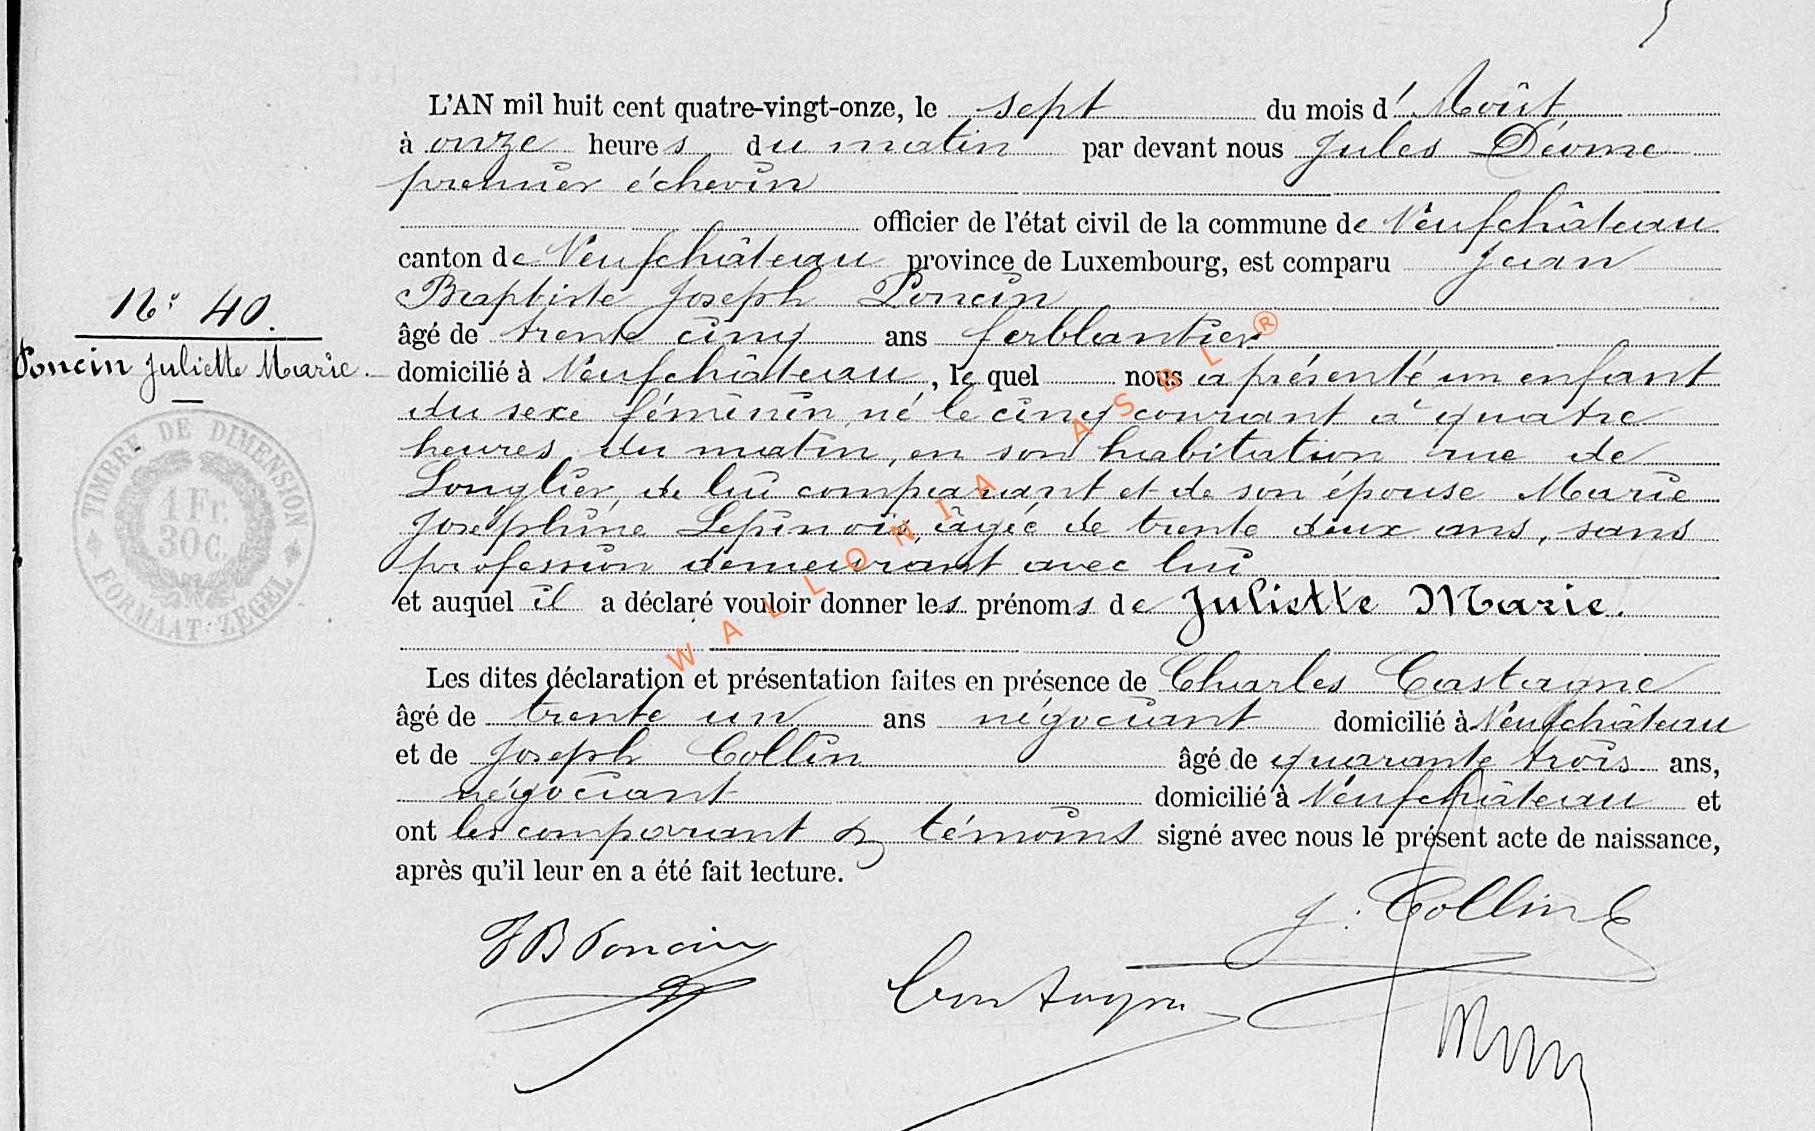 L'AN mil huit cent quatre-vingt-onze, le sept du mois d'Août
à onze heures du matin par devant nous Jules Déome
premier échevin
officier de l'état civil de la commune de Neufchâteau
canton de Neufchâteau province de Luxembourg, est comparu Jean
Baptiste Joseph Poncin
N° 40.
âgé de trente cinq ans ferblantier
Poncin Juliette Marie.
domicilié à Neufchâteau, le quel nous a présenté un enfant
du sexe féminin, né le cinq courant à quatre
heures du matin, en son habitation rue de
Longlier, de lui comparant et de son épouse Marie
Joséphine Lepinois, âgée de trente deux ans, sans
profession demeurant avec lui
et auquel il a déclaré vouloir donner les prénoms de Juliette Marie.
Les dites déclaration et présentation faites en présence de Charles Castagne
âgé de trente un ans négociant domicilié à Neufchâteau
et de Joseph Collin âgé de quarante trois ans,
négociant domicilié à Neufchâteau et
ont les comparant & témoins signé avec nous le présent acte de naissance,
après qu'il leur en a été fait lecture.
J. Collin
JB Poncin
Castagne
TIMBRE DE DIMENSION
1 Fr.
30 C.
FORMAAT-ZEGEL
WALLONIA ASBL®